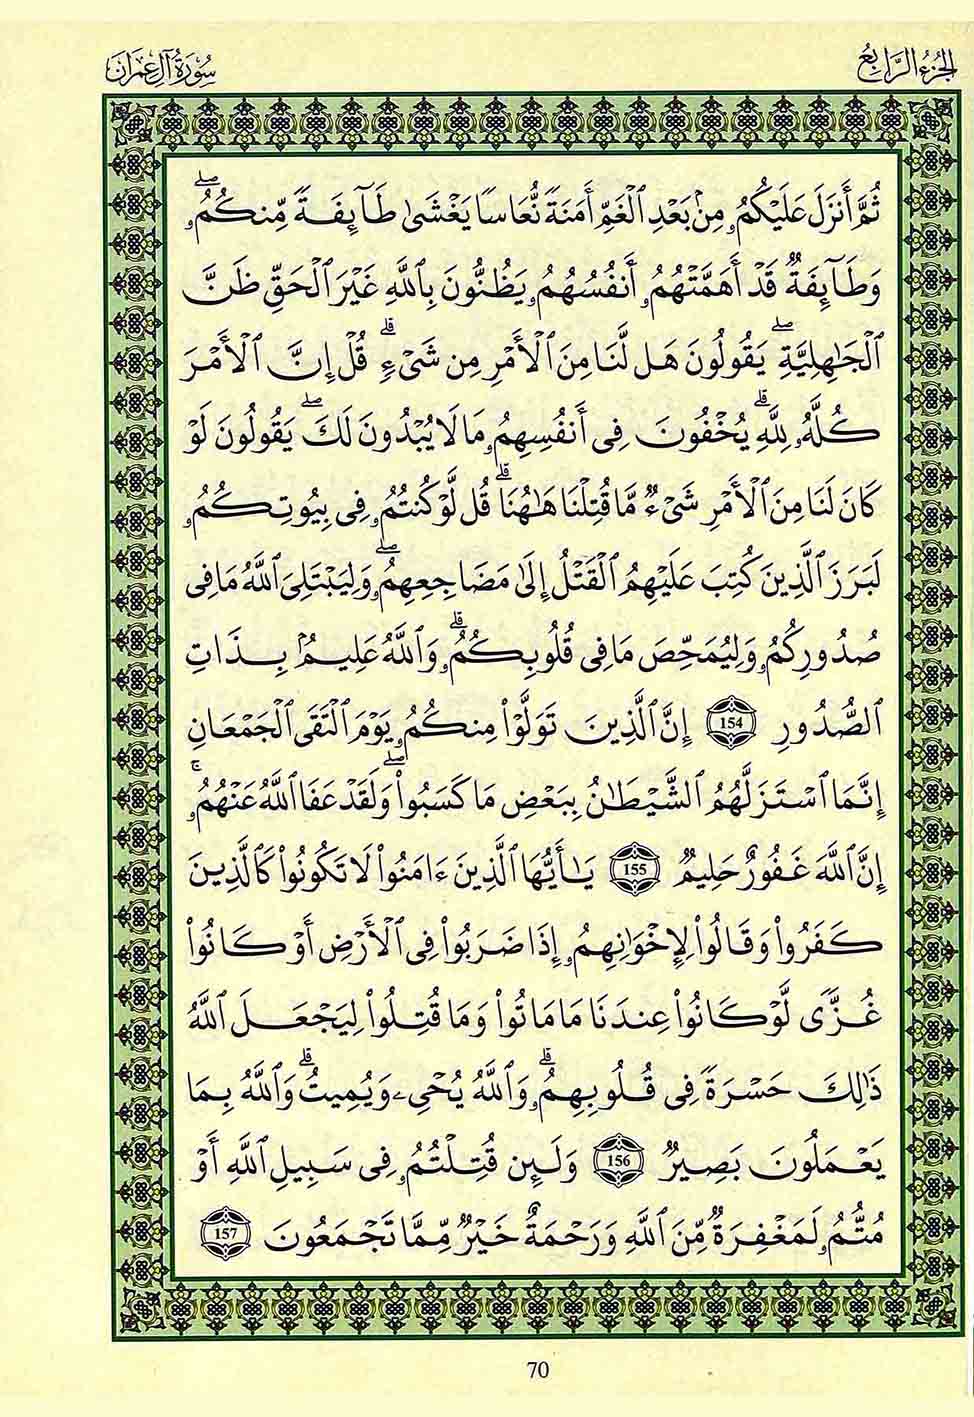 الجزء الرابع
سورة آل عمران
ثُمَّ أَنزَلَ عَلَيْكُمُۥ مِنۢ بَعْدِ ٱلْغَمِّ أَمَنَةً نُّعَاسًا يَغْشَىٰ طَآئِفَةً مِّنكُمُۥ ۖ
وَطَآئِفَةٌ قَدْ أَهَمَّتْهُمُۥ أَنفُسُهُمُۥ يَظُنُّونَ بِٱللَّهِ غَيْرَ ٱلْحَقِّ ظَنَّ
ٱلْجَٰهِلِيَّةِ ۖ يَقُولُونَ هَل لَّنَا مِنَ ٱلْأَمْرِ مِن شَىْءٍ ۗ قُلْ إِنَّ ٱلْأَمْرَ
كُلَّهُۥ لِلَّهِ ۗ يُخْفُونَ فِىٓ أَنفُسِهِمُۥ مَا لَا يُبْدُونَ لَكَ ۖ يَقُولُونَ لَوْ
كَانَ لَنَا مِنَ ٱلْأَمْرِ شَىْءٌ مَّا قُتِلْنَا هَٰهُنَا ۗ قُل لَّوْ كُنتُمُۥ فِى بِيُوتِكُمُۥ
لَبَرَزَ ٱلَّذِينَ كُتِبَ عَلَيْهِمُ ٱلْقَتْلُ إِلَىٰ مَضَاجِعِهِمُۥ ۖ وَلِيَبْتَلِىَ ٱللَّهُ مَا فِى
صُدُورِكُمُۥ وَلِيُمَحِّصَ مَا فِى قُلُوبِكُمُۥ ۗ وَٱللَّهُ عَلِيمٌۢ بِذَاتِ
ٱلصُّدُورِ 154 إِنَّ ٱلَّذِينَ تَوَلَّوْا۟ مِنكُمُۥ يَوْمَ ٱلْتَقَى ٱلْجَمْعَانِ
إِنَّمَا ٱسْتَزَلَّهُمُ ٱلشَّيْطَٰنُ بِبَعْضِ مَا كَسَبُوا۟ ۖ وَلَقَدْ عَفَا ٱللَّهُ عَنْهُمُۥ ۚ
إِنَّ ٱللَّهَ غَفُورٌ حَلِيمٌ 155 يَٰٓأَيُّهَا ٱلَّذِينَ ءَامَنُوا۟ لَا تَكُونُوا۟ كَٱلَّذِينَ
كَفَرُوا۟ وَقَالُوا۟ لِإِخْوَٰنِهِمُۥ إِذَا ضَرَبُوا۟ فِى ٱلْأَرْضِ أَوْ كَانُوا۟
غُزًّى لَّوْ كَانُوا۟ عِندَنَا مَا مَاتُوا۟ وَمَا قُتِلُوا۟ لِيَجْعَلَ ٱللَّهُ
ذَٰلِكَ حَسْرَةً فِى قُلُوبِهِمُۥ ۗ وَٱللَّهُ يُحْىِۦ وَيُمِيتُ ۗ وَٱللَّهُ بِمَا
يَعْمَلُونَ بَصِيرٌ 156 وَلَئِن قُتِلْتُمُۥ فِى سَبِيلِ ٱللَّهِ أَوْ
مُتُّمُۥ لَمَغْفِرَةٌ مِّنَ ٱللَّهِ وَرَحْمَةٌ خَيْرٌ مِّمَّا تَجْمَعُونَ 157
70